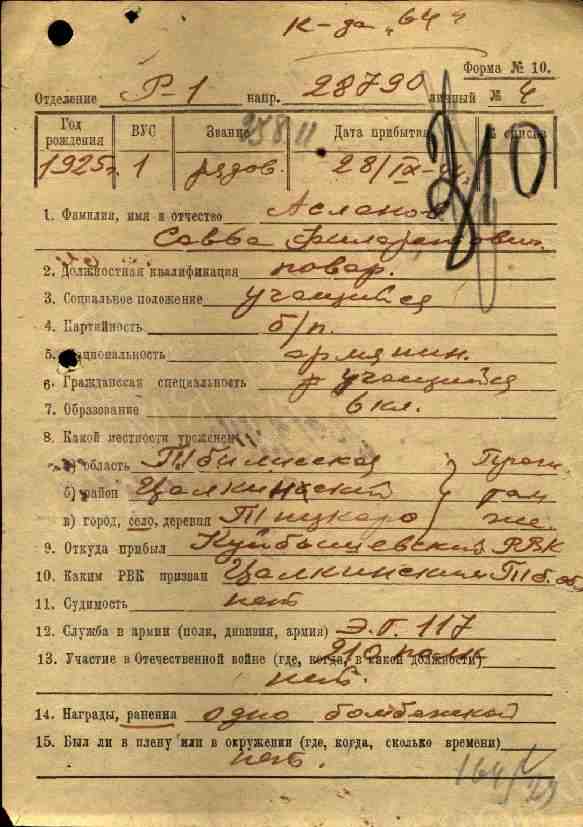 К-да „64"
Форма № 10.
Отделение Р-1 напр. 28790 личный № 4
Год рождения ВУС Звание Дата прибытия № списка
1925г. 1 рядов. 28/IX-
25811
210
1. Фамилия, имя и отчество Асланов
Савва Филаретович.
2. Должностная квалификация повар.
3. Социальное положение учащийся
4. Партийность б/п.
5. Национальность армянин.
6. Гражданская специальность учащийся
7. Образование 6 кл.
8. Какой местности уроженец
а) область Тбилисская Прож.
б) район Цалкинский там
в) город, село, деревня Тицкаро же.
9. Откуда прибыл Куйбышевский РВК
10. Каким РВК призван Цалкинским Тб. об
11. Судимость нет
12. Служба в армии (полк, дивизия, армия) Э.Г. 117
210 полк
13. Участие в Отечественной войне (где, когда, в какой должности)
нет.
14. Награды, ранения одно бомбежкой
15. Был ли в плену или в окружении (где, когда, сколько времени)
нет.